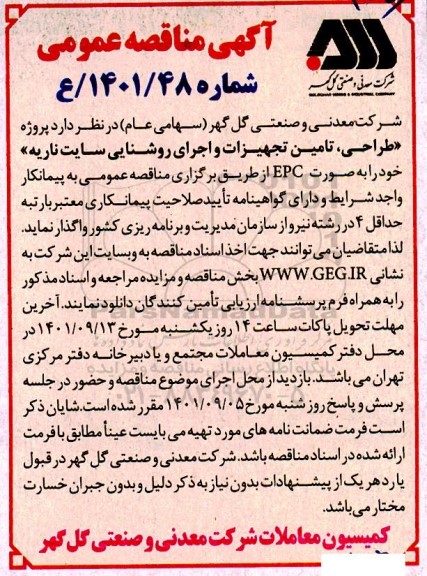 آگهی مناقصه عمومی
شماره ۱۴۰۱/۴۸/ع
شرکت معدنی و صنعتی گل گهر
GOLGOHAR MINING & INDUSTRIAL COMPANY
شرکت معدنی و صنعتی گل گهر (سهامی عام) در نظر دارد پروژه
«طراحی، تامین تجهیزات و اجرای روشنایی سایت ناریه»
خود را به صورت EPC از طریق برگزاری مناقصه عمومی به پیمانکار
واجد شرایط و دارای گواهینامه تأیید صلاحیت پیمانکاری معتبر با رتبه
حداقل ۴ در رشته نیرو از سازمان مدیریت و برنامه ریزی کشور واگذار نماید.
لذا متقاضیان می توانند جهت اخذ اسناد مناقصه به وبسایت این شرکت به
نشانی WWW.GEG.IR بخش مناقصه و مزایده مراجعه و اسناد مذکور
را به همراه فرم پرسشنامه ارزیابی تأمین کنندگان دانلود نمایند. آخرین
مهلت تحویل پاکات ساعت ۱۴ روز یکشنبه مورخ ۱۴۰۱/۰۹/۱۳ در
محل دفتر کمیسیون معاملات مجتمع و یا دبیرخانه دفتر مرکزی
تهران می باشد. بازدید از محل اجرای موضوع مناقصه و حضور در جلسه
پرسش و پاسخ روز شنبه مورخ ۱۴۰۱/۰۹/۰۵ مقرر شده است. شایان ذکر
است فرمت ضمانت نامه های مورد تهیه می بایست عیناً مطابق با فرمت
ارائه شده در اسناد مناقصه باشد. شرکت معدنی و صنعتی گل گهر در قبول
یا رد هر یک از پیشنهادات بدون نیاز به ذکر دلیل و بدون جبران خسارت
مختار می باشد.
کمیسیون معاملات شرکت معدنی و صنعتی گل گهر